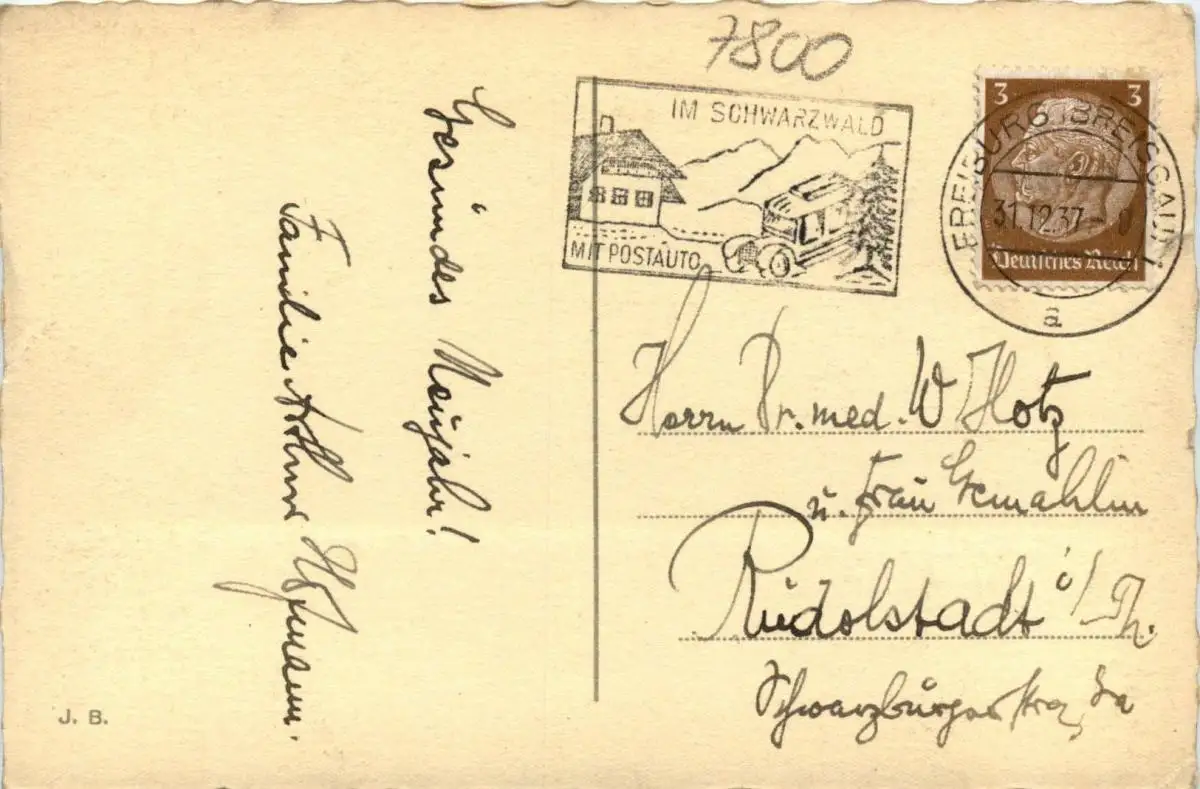 7800
IM SCHWARZWALD
MIT POSTAUTO
3 3
FREIBURG (BREISGAU) 1
31.12.37
Deutsches Reich
a
Gesundes Neujahr!
Familie Arthur
Herrn Dr. med. W Hotz
u. Frau Gemahlin
Rudolstadt i/Th.
Schwarzburger
J. B.